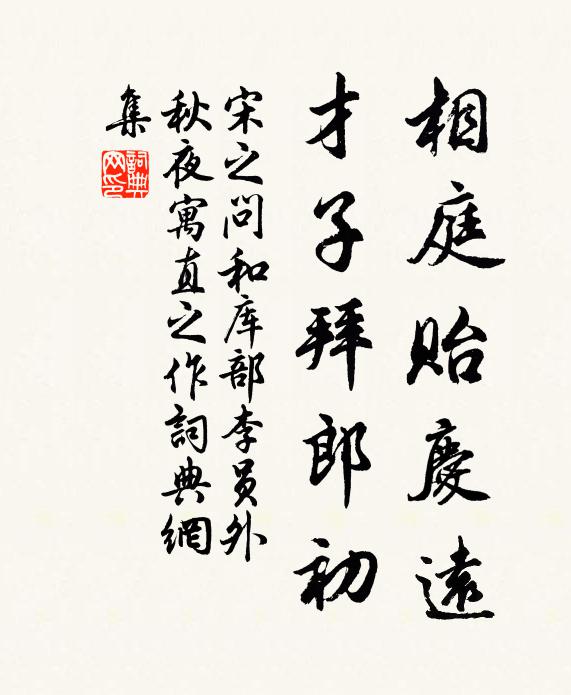 相庭貽慶遠
才子拜郎初
宋之问和库部李员外
秋夜寓直之作詞典網
集
詞典网印